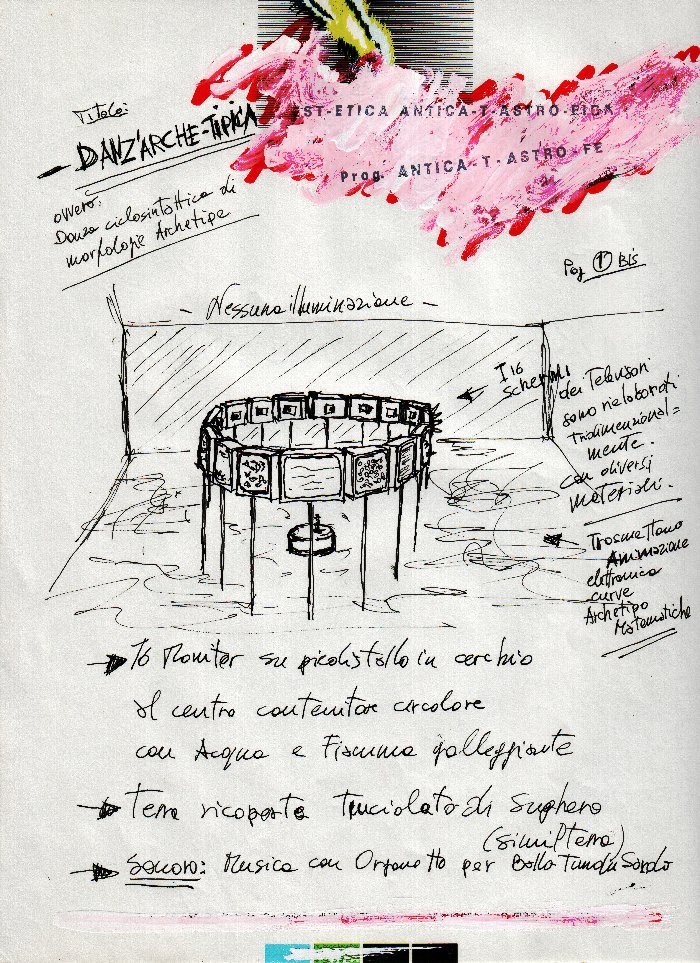 EST-ETICA ANTICA-T-ASTRO-FICA
Prog. ANTICA-T-ASTRO-FE
Titolo:
- DANZ'ARCHE-TIPICA
ovvero:
Danza ciclosintottica di
morfologie Archetipe
Pag 1 Bis
- Nessuna illuminazione -
I 16
schermi
dei Televisori
sono rielaborati
Tridimenzional=
mente.
con diversi
materiali.
Trasmettono
Animazione
elettronica
curve
Archetipo
Matematiche
16 Monitor su piedistallo in cerchio
al centro contenitore circolare
con Acqua e Fiamma galleggiante
Terra ricoperta Truciolato di Sughero
(simil terra)
Sonoro: Musica con Organetto per Ballo Tundu Sardo